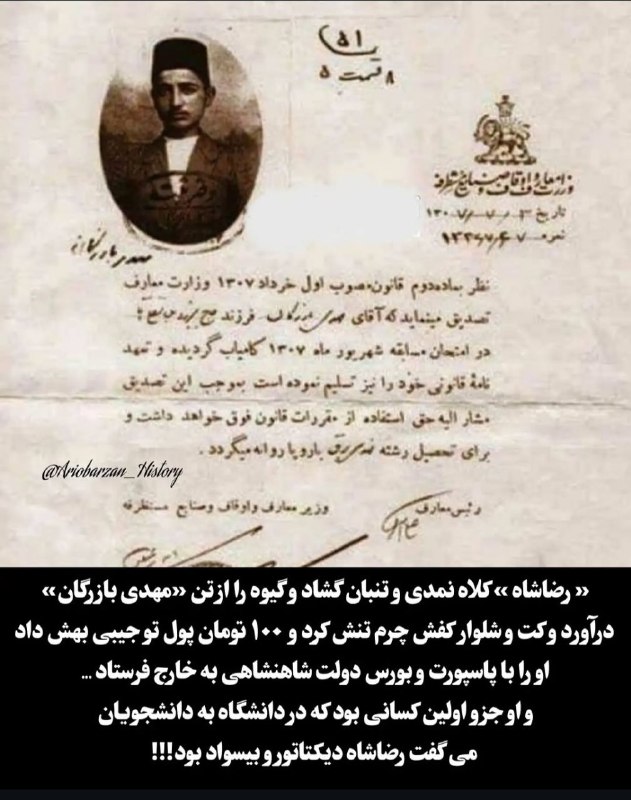 ۵۱
قسمت ۵
وزارت معارف و اوقاف و صنایع مستظرفه
تاریخ
نمره
نظر بماده دوم قانون مصوب اول خرداد ۱۳۰۷ وزارت معارف
تصدیق مینماید که آقای مهدی بازرگان فرزند
در امتحان مسابقه شهریور ماه ۱۳۰۷ کامیاب گردیده و تعهد
نامۀ قانونی خود را نیز تسلیم نموده است بموجب این تصدیق
مشار الیه حق استفاده از مقررات قانون فوق خواهد داشت و
برای تحصیل رشته باروپا روانه میگردد .
رئیس معارف
وزیر معارف و اوقاف و صنایع مستظرفه
@Ariobarzan_History
« رضاشاه » کلاه نمدی و تنبان گشاد و گیوه را از تن «مهدی بازرگان»
درآورد و کت و شلوار کفش چرم تنش کرد و ۱۰۰ تومان پول تو جیبی بهش داد
او را با پاسپورت و بورس دولت شاهنشاهی به خارج فرستاد ...
و او جزو اولین کسانی بود که در دانشگاه به دانشجویان
می گفت رضاشاه دیکتاتور و بیسواد بود!!!